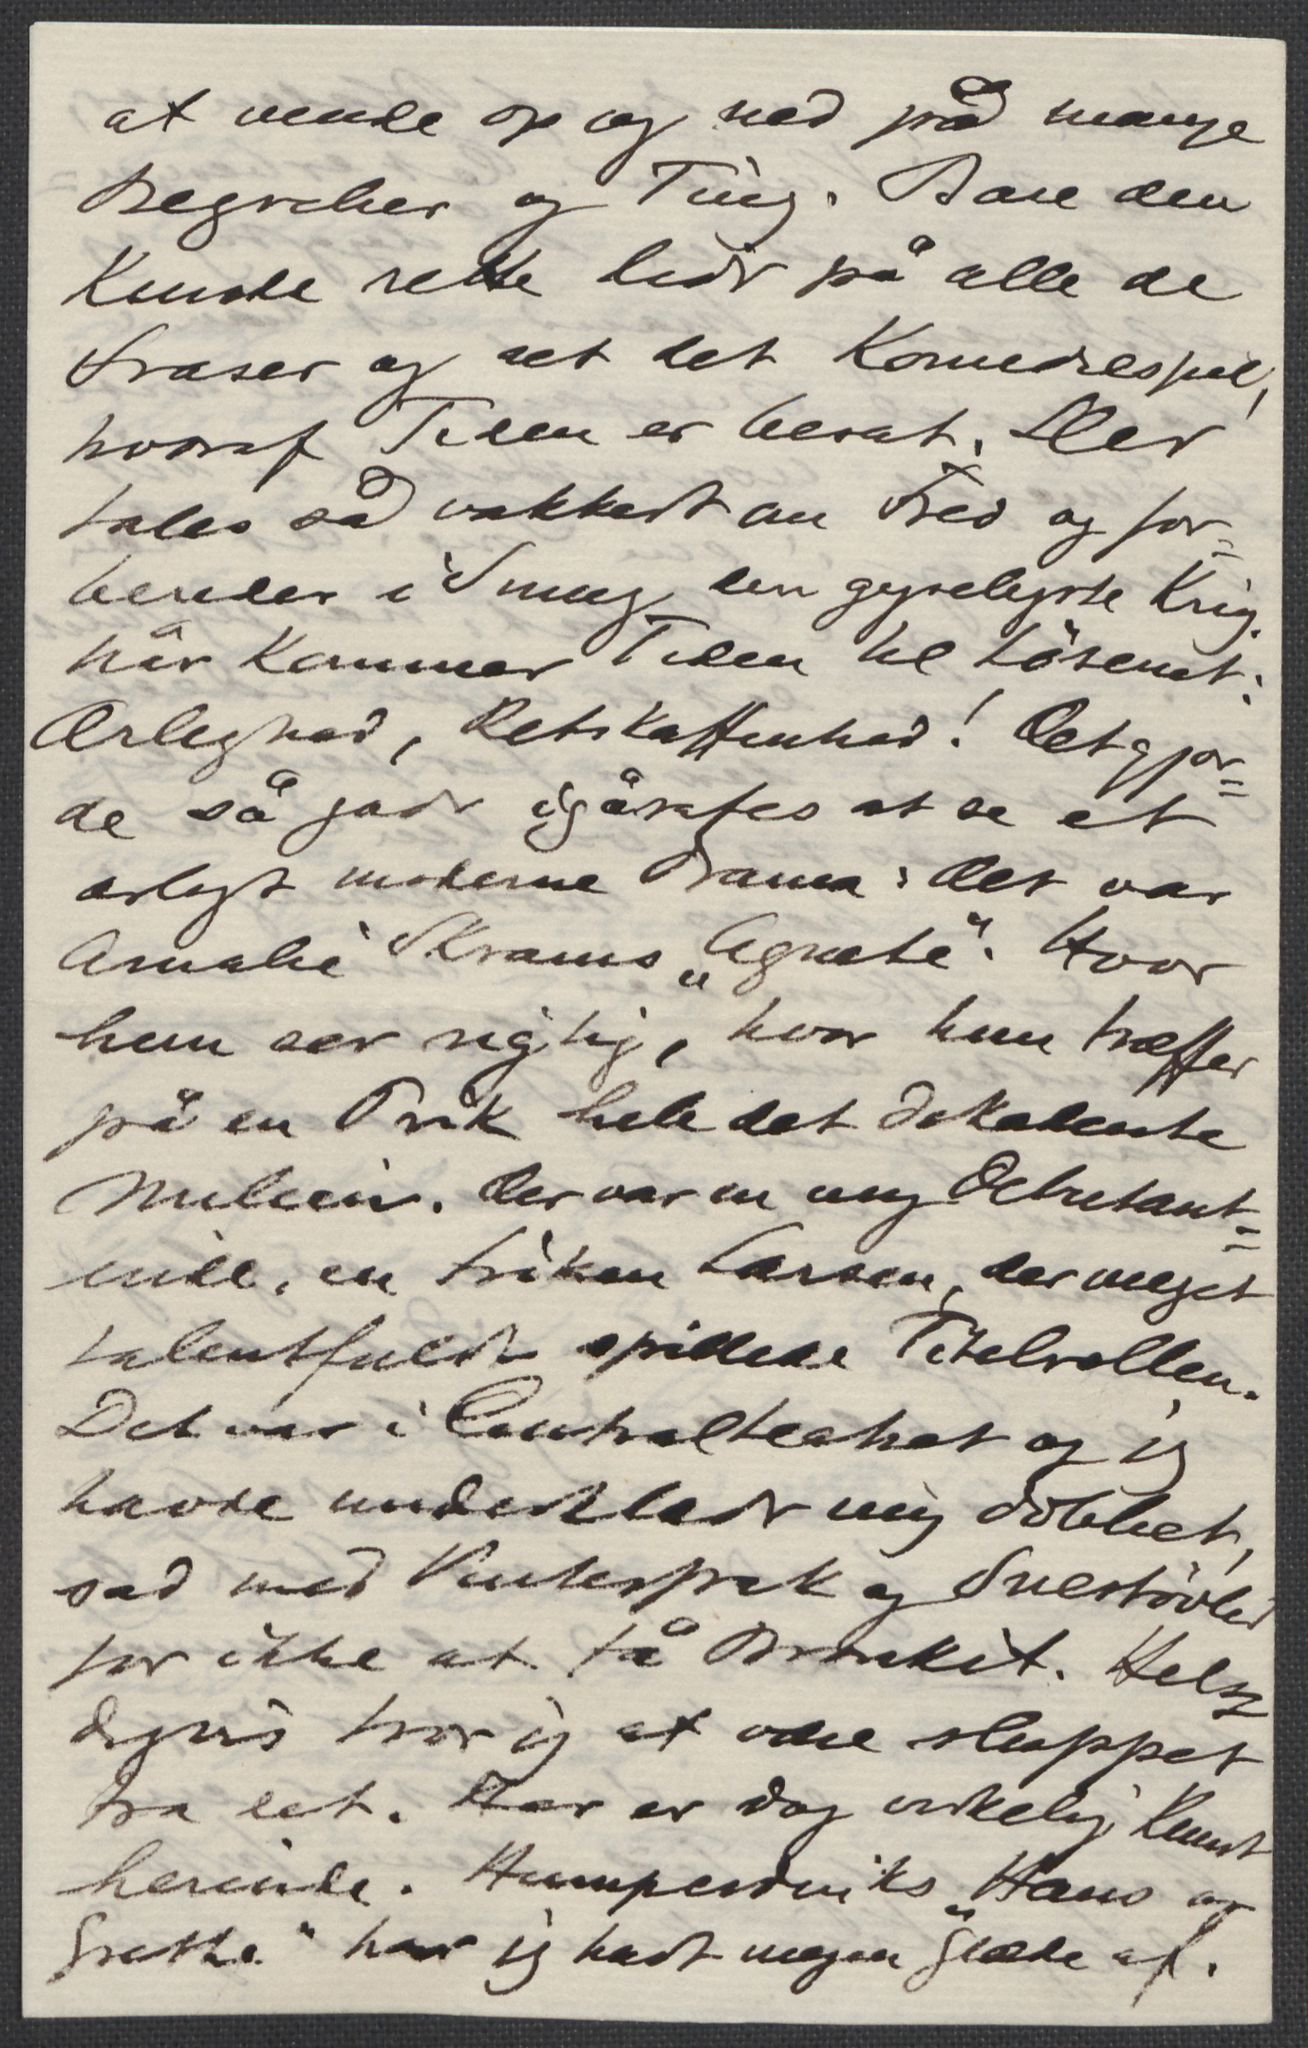 at vende op og ned på mange
Begreber og Ting. Bare den
kunde rette lidt på alle de
Fraser og alt det Komediespil,
hvoraf Tiden er besat. Der
tales så vakkert om Fred og for=
beredes i Smug den gyseligste Krig.
når kommer Tiden til Løsenet:
Ærlighed, Retskaffenhed! Det gjor=
de så godt igåraftes at se et
ærligt moderne Drama: det var
Amalie Skrams „Agnete“. Hvor
hun ser rigtig, hvor hun træffer
på en Prik hele det dekadente
Milieu. Der var en ung Debutant=
inde, en frøken Larsen, der meget
talentfuldt spillede Titelrollen.
Det var i Centralteatret og jeg
havde underklædt mig dobbelt,
sad med Vinterfrak og Snestøvler
for ikke at få Bronkit. Heldig
digvis tror jeg at være sluppet
fra det. Her er dog virkelig Kunst
herinde. Humperdinks „Hans og
Grethe“ har jeg havt megen Glæde af.